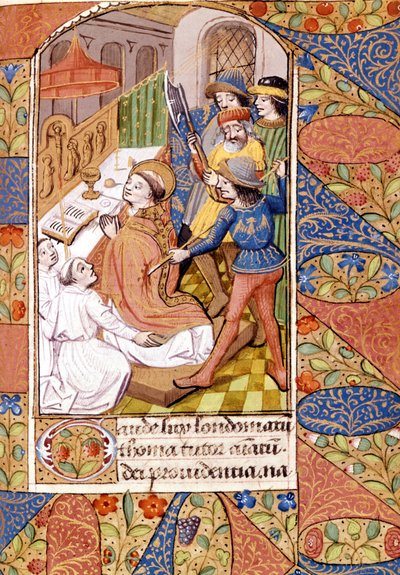 Gaude lux londoniaru
thoma tutor
dei prouidentia. na